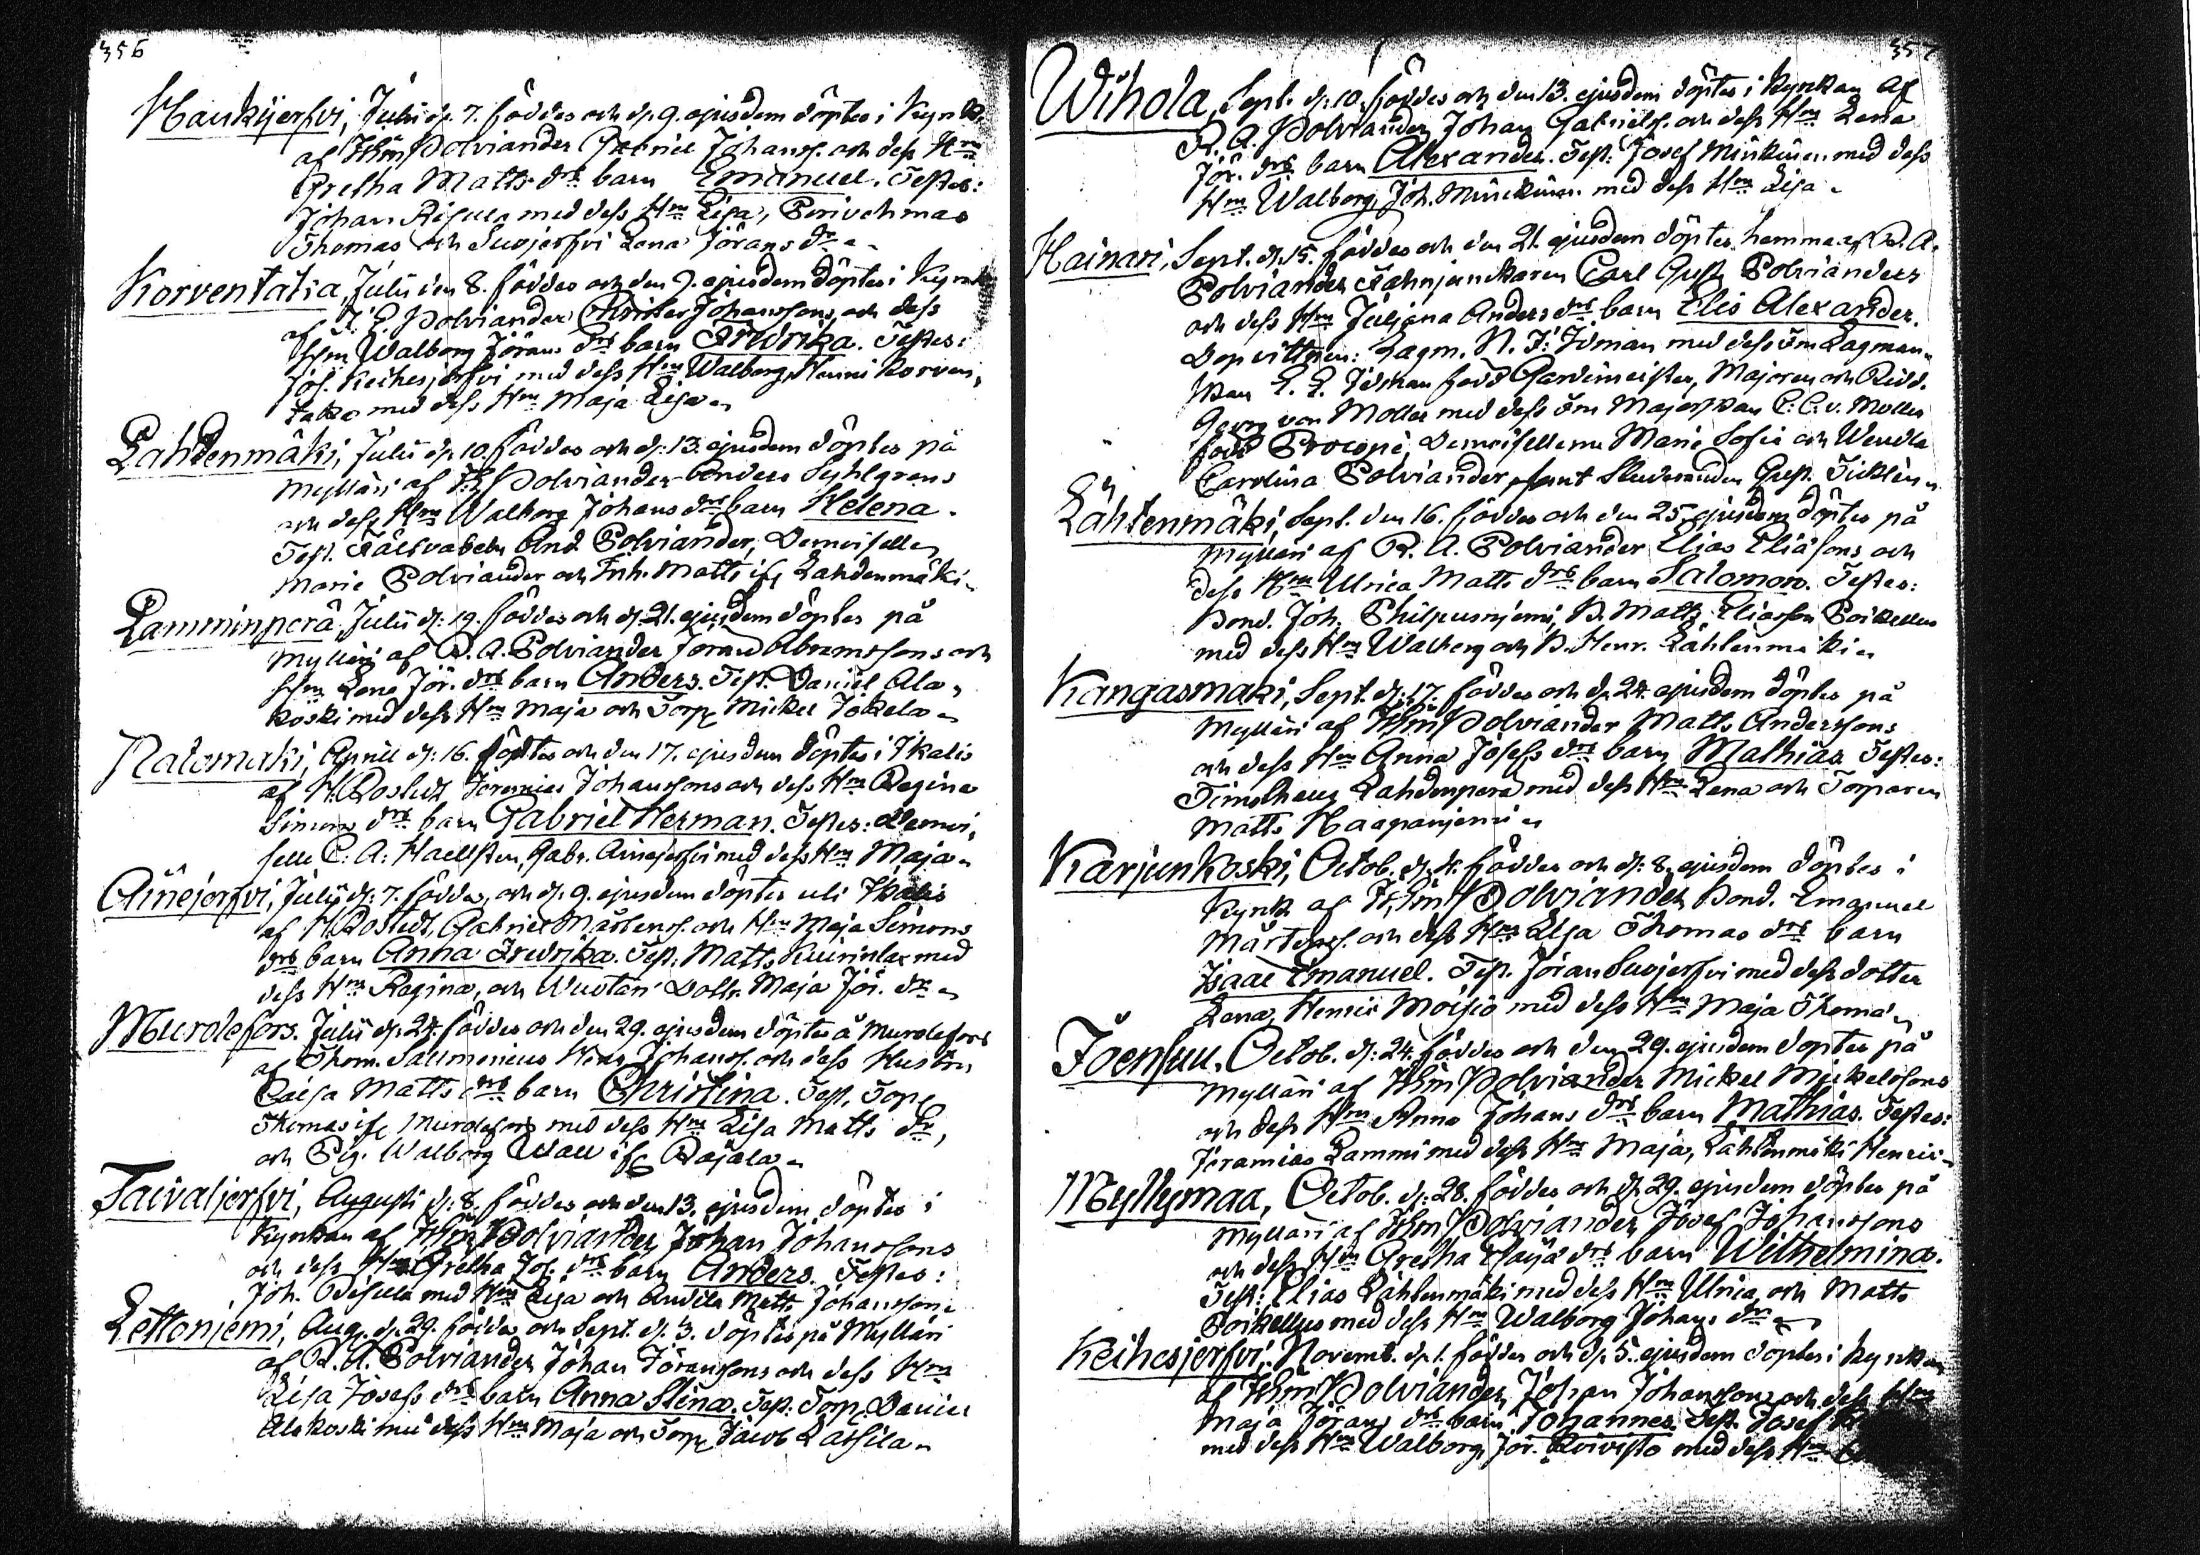 356
Haukijerfvi, Julii d. 7. föddes och d. 9. ejusdem döptes i Kyrk.
af Polviander Gabriel Johanss. och dess Hru
Gretha Matts drs barn Emanuel. Testes:
Johan med dess Hru Lisa,
Thomas och Suojerfvi Lena Jörans dr
Korventaka, Julii den 8. föddes och den 9. ejusdem döptes i Kyrk
af Polviander Johanssons och dess
Hru Walborg Jörans drs barn Fredrika. Testes:
Jos. Keihesjerfvi med dess Hru Walborg, Henric Korven,
taka med dess Hru Maja Lisa
Lahdenmäki, Julii d. 10 föddes och d. 13. ejusdem döptes på
Mylläri af Polviander Anders Syhlgrens
och dess Hru Walborg Johans drs barn Helena.
Test. And. Polviander, Demoiselle
Marie Polviander och Inh. Matts ifr Lahdenmäki
Lamminperä Julii d: 19. föddes och d. 21. ejusdem döptes på
Mylläri af R. A. Polviander Jöran Abramssons och
Hru Lena Jör. drs barn Anders. Test. Daniel Ala,
koski med dess Hru Maja och Torp. Mickel Jokela
Natomaki, Aprill d: 16. föddes och den 17. ejusdem döptes i Ikalis
af H. Rostedt Jeremias Johanssons och dess Hru Regina
Simons drs barn Gabriel Herman. Testes: Demoi,
selle C: A: Haellsten, Gabr. Ainejerfvi med dess Hru Maja
Ainejerfvi, Julii d: 7. föddes, och d. 9. ejusdem döptes uti Ikalis
af H. Rostedt, Gabriel Mårtenss. och Hru Maja Simons
drs barn Anna Fredrika. Test. Matts med
dess Hru Regina, och Dottr. Maja Jör. dr
Murolefors. Julii d. 24. föddes och den 29. ejusdem döptes å Murolefors
af Thom. Salmenius Johanss. och dess Hustru
Caisa Matts drs barn Christina. Test. Torp.
Thomas ifr Murolefors med dess Hru Lisa Matts dr,
och Pig. Walborg ifr Rajala
Taivaljerfvi, Augusti d: 8. föddes och den 13. ejusdem döptes i
Kyrkan af Polviander Johan Johanssons
och dess Hru Gretha Jos. drs barn Anders. Testes:
Joh. med Hru Lisa och Matts Johansson
Lettoniemi, Aug. d. 29. föddes och Sept. d. 3. döptes på Mylläri
af R. A. Polviander Johan Jöranssons och dess Hru
Lisa Josefs drs barn Anna Stina. Test: Torp: Daniel
Alakoski med dess Hru Maja och Torp. Jacob Lassila
357
Wihola, Sept. d: 10. föddes och den 13. ejusdem döptes i Kyrkan af
R. A. Polviander Johan Gabriels. och dess Hru Lena
Jör. drs barn Alexander. Test: Josef Minkinen med dess
Hru Walborg, Joh. Minkinen med dess Hru Lisa
Hainari, Sept. d. 15. föddes och den 21. ejusdem döptes hemma af R. A.
Polviander Fähnjunkaren Carl Gust. Polvianders
och dess Hru Juliana Anders drs barn Elis Alexander.
Dopvittnen: Lagm. N. J: Idman med dess Fru Lagman,
skan E. E. Idman född Gardemeister, Majoren och Ridd.
Georg von Moller med dess Fru Majorskan C: C. v. Moller
född Procopé, Demoisellerna Maria Sofia och Wendla
Carolina Polviander samt Studeranden Gust.
Lähtenmäki, Sept. den 16. föddes och den 25. ejusdem döptes på
Mylläri af R. A. Polviander, Elias Eliäsons och
dess Hru Ulrica Matts drs barn Salomon. Testes:
Bond. Joh. Philpusniemi, B. Matts Eliasson Poikellus
med dess Hru Walborg och B. Henr. Lähtenmäki
Kangasmaki, Sept. d: 17. föddes och d. 24. ejusdem döptes på
Mylläri af Polviander Matts Anderssons
och dess Hru Anna Josefs drs barn Mathias Testes:
Timotheus Lahdenperä med dess Hru Lena och Torparen
Matts Haapaniemi
Karjunkoski, Octob. d. 4. föddes och d. 8. ejusdem döptes i
Kyrk. af Polviander Bond. Emanuel
Mårtenss. och dess Hru Lisa Thomas drs barn
Isaac Emanuel. Test. Jöran Suojerfvi med dess dotter
Lena, Henric Moisio med dess Hru Maja Thoma
Joensuu, Octob. d: 24. föddes och den 29. ejusdem döptes på
Mylläri af Polviander Mickel Mickelssons
och dess Hru Anna Johans drs barn Mathias. Testes:
Jeramias Lammi med dess Hru Maja, Lähtenmäki Henric
Myllymaa, Octob. d. 28. föddes och d. 29. ejusdem döptes på
Mylläri af Polviander Josef Johanssons
och dess Hru Gretha drs barn Wilhelmina.
Test: Elias Lähtenmäki med dess Hru Ulrica, och Matts
Poikellus med dess Hru Walborg Johans dr
Keihesjerfvi, Novemb. d. 1. föddes och d. 5. ejusdem döptes i Kyrkan
af Polviander, Johan Johanssons och dess Hru
Maja Jörans drs barn Johannes. Test. Josef
med dess Hru Walborg, Jör. Koivisto med dess Hru